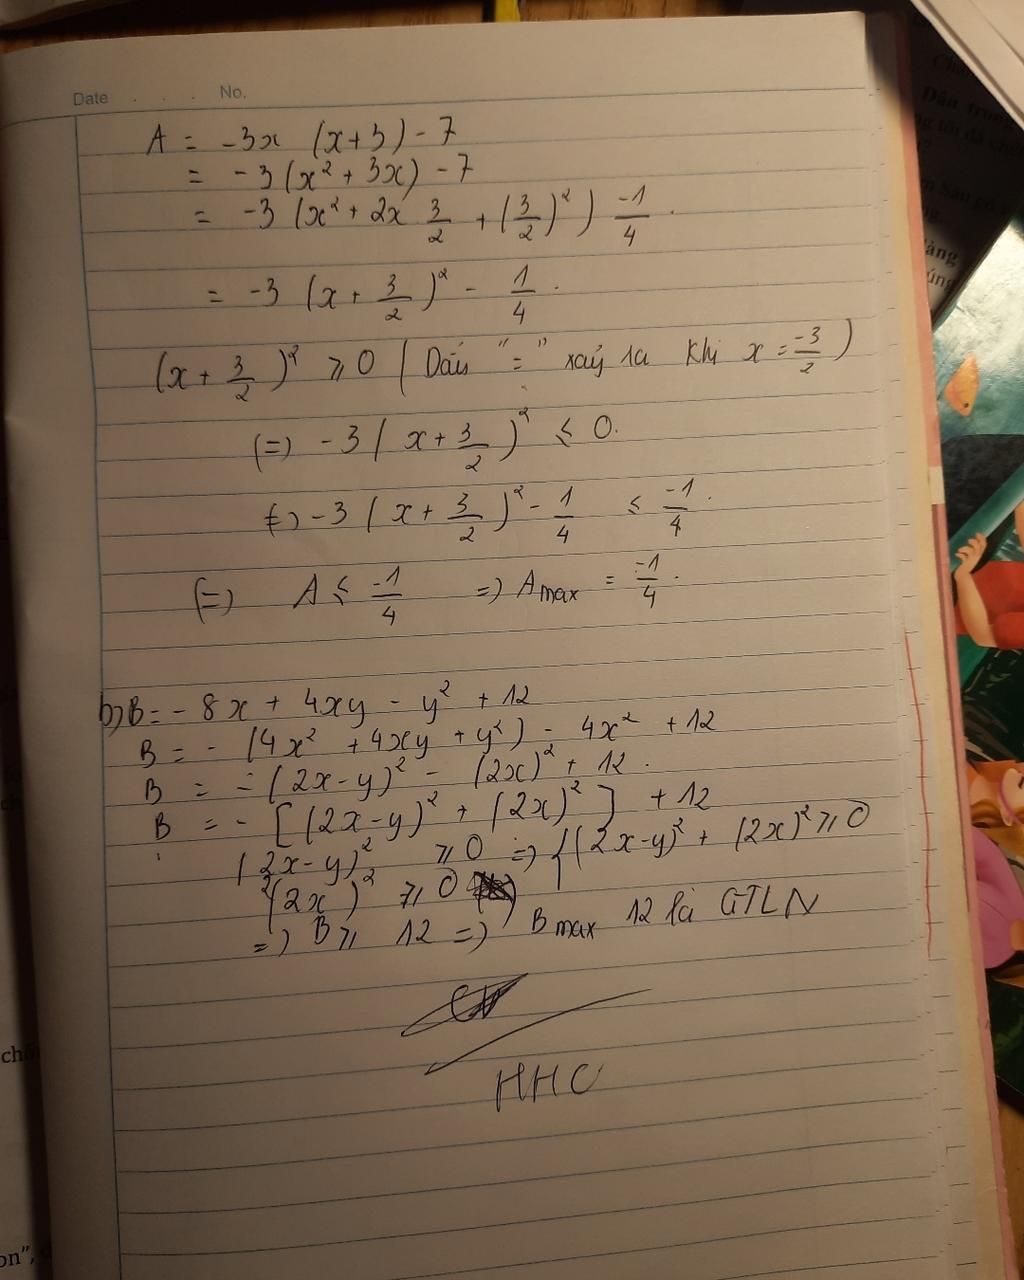 Date . . . No.
A = -3x (x+3) - 7
= -3(x² + 3x) - 7
= -3 (x² + 2x 3/2 + (3/2)²) -1/4.
= -3 (x + 3/2)² - 1/4.
(x + 3/2)² ≥ 0 (Dấu "=" xảy ra khi x = -3/2)
(=) -3(x + 3/2)² ≤ 0.
(=) -3(x + 3/2)² - 1/4 ≤ -1/4.
(=) A ≤ -1/4 =) A max = -1/4.
b) B = - 8x + 4xy - y² + 12
B = - (4x² + 4xy + y²) - 4x² + 12
B = - (2x-y)² - (2x)² + 12.
B = - [(2x-y)² + (2x)²] + 12
(2x-y)² ≥ 0 =) {(2x-y)² + (2x)² ≥ 0
(2x)² ≥ 0
=) B ≥ 12 =) B max 12 là GTLN
HHC